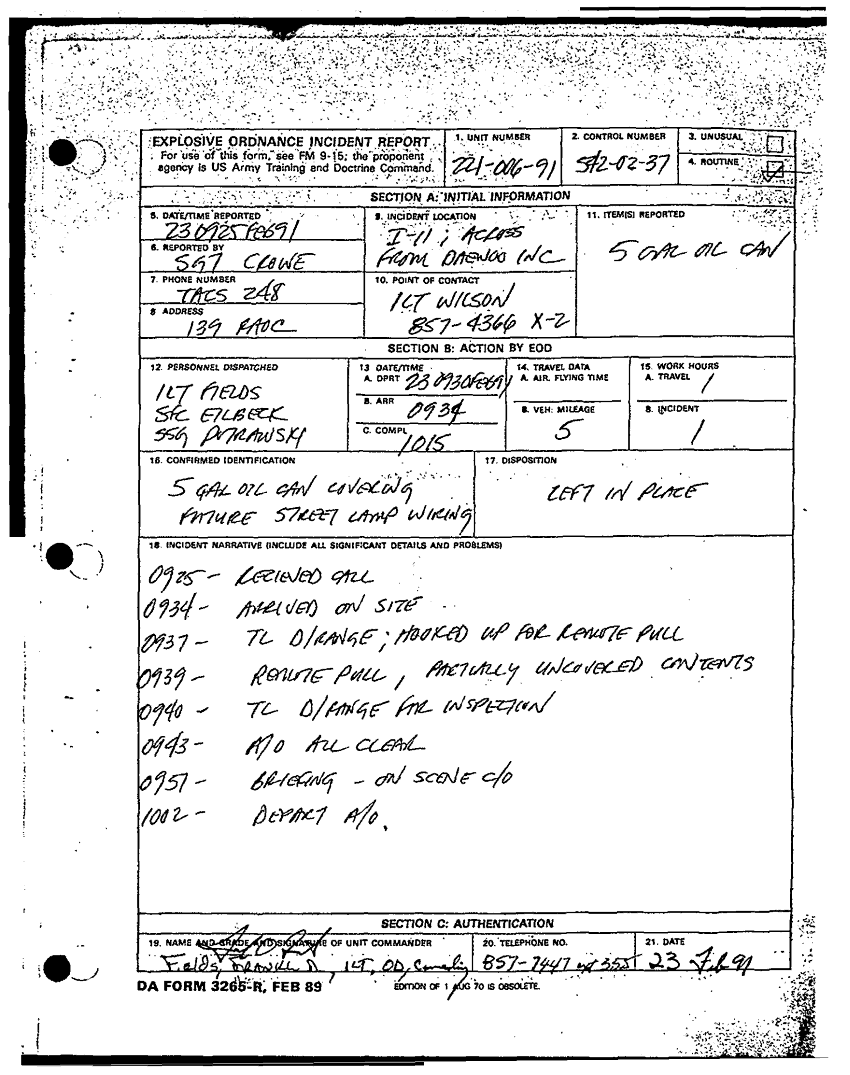 EXPLOSIVE ORDNANCE INCIDENT REPORT
For use of this form, see FM 9-15; the proponent
agency is US Army Training and Doctrine Command.
1. UNIT NUMBER
221-006-91
2. CONTROL NUMBER
542-02-37
3. UNUSUAL
4. ROUTINE
SECTION A: INITIAL INFORMATION
5. DATE/TIME REPORTED
230925FEB91
6. REPORTED BY
SGT CROWE
7. PHONE NUMBER
TACS 248
8 ADDRESS
139 RAOC
9. INCIDENT LOCATION
I-11; ACROSS
FROM DAEWOO INC
10. POINT OF CONTACT
1LT WILSON
857-4366 X-2
11. ITEM(S) REPORTED
5 GAL OIL CAN
SECTION B: ACTION BY EOD
12. PERSONNEL DISPATCHED
1LT FIELDS
SFC EILBECK
SSG
13 DATE/TIME
A. DPRT 230930FEB91
B. ARR
0934
C. COMPL
1015
14. TRAVEL DATA
A. AIR. FLYING TIME
B. VEH: MILEAGE
5
15. WORK HOURS
A. TRAVEL
1
B. INCIDENT
1
16. CONFIRMED IDENTIFICATION
5 GAL OIL CAN COVERING
FUTURE STREET LAMP WIRING
17. DISPOSITION
LEFT IN PLACE
18. INCIDENT NARRATIVE (INCLUDE ALL SIGNIFICANT DETAILS AND PROBLEMS)
0925 - RECIEVED CALL
0934 - ARRIVED ON SITE
0937 - TL D/RANGE; HOOKED UP FOR REMOTE PULL
0939 - REMOTE PULL, PARTIALLY UNCOVERED CONTENTS
0940 - TL D/RANGE FOR INSPECTION
0943 - A/O ALL CLEAR
0957 - BRIEFING - ON SCENE C/O
1002 - DEPART A/O.
SECTION C: AUTHENTICATION
19. NAME AND GRADE AND SIGNATURE OF UNIT COMMANDER
Fields, 1LT, OD, Comdg
20. TELEPHONE NO.
857-7447 ext 355
21. DATE
23 Feb 91
DA FORM 3265-R, FEB 89
EDITION OF 1 AUG 70 IS OBSOLETE.